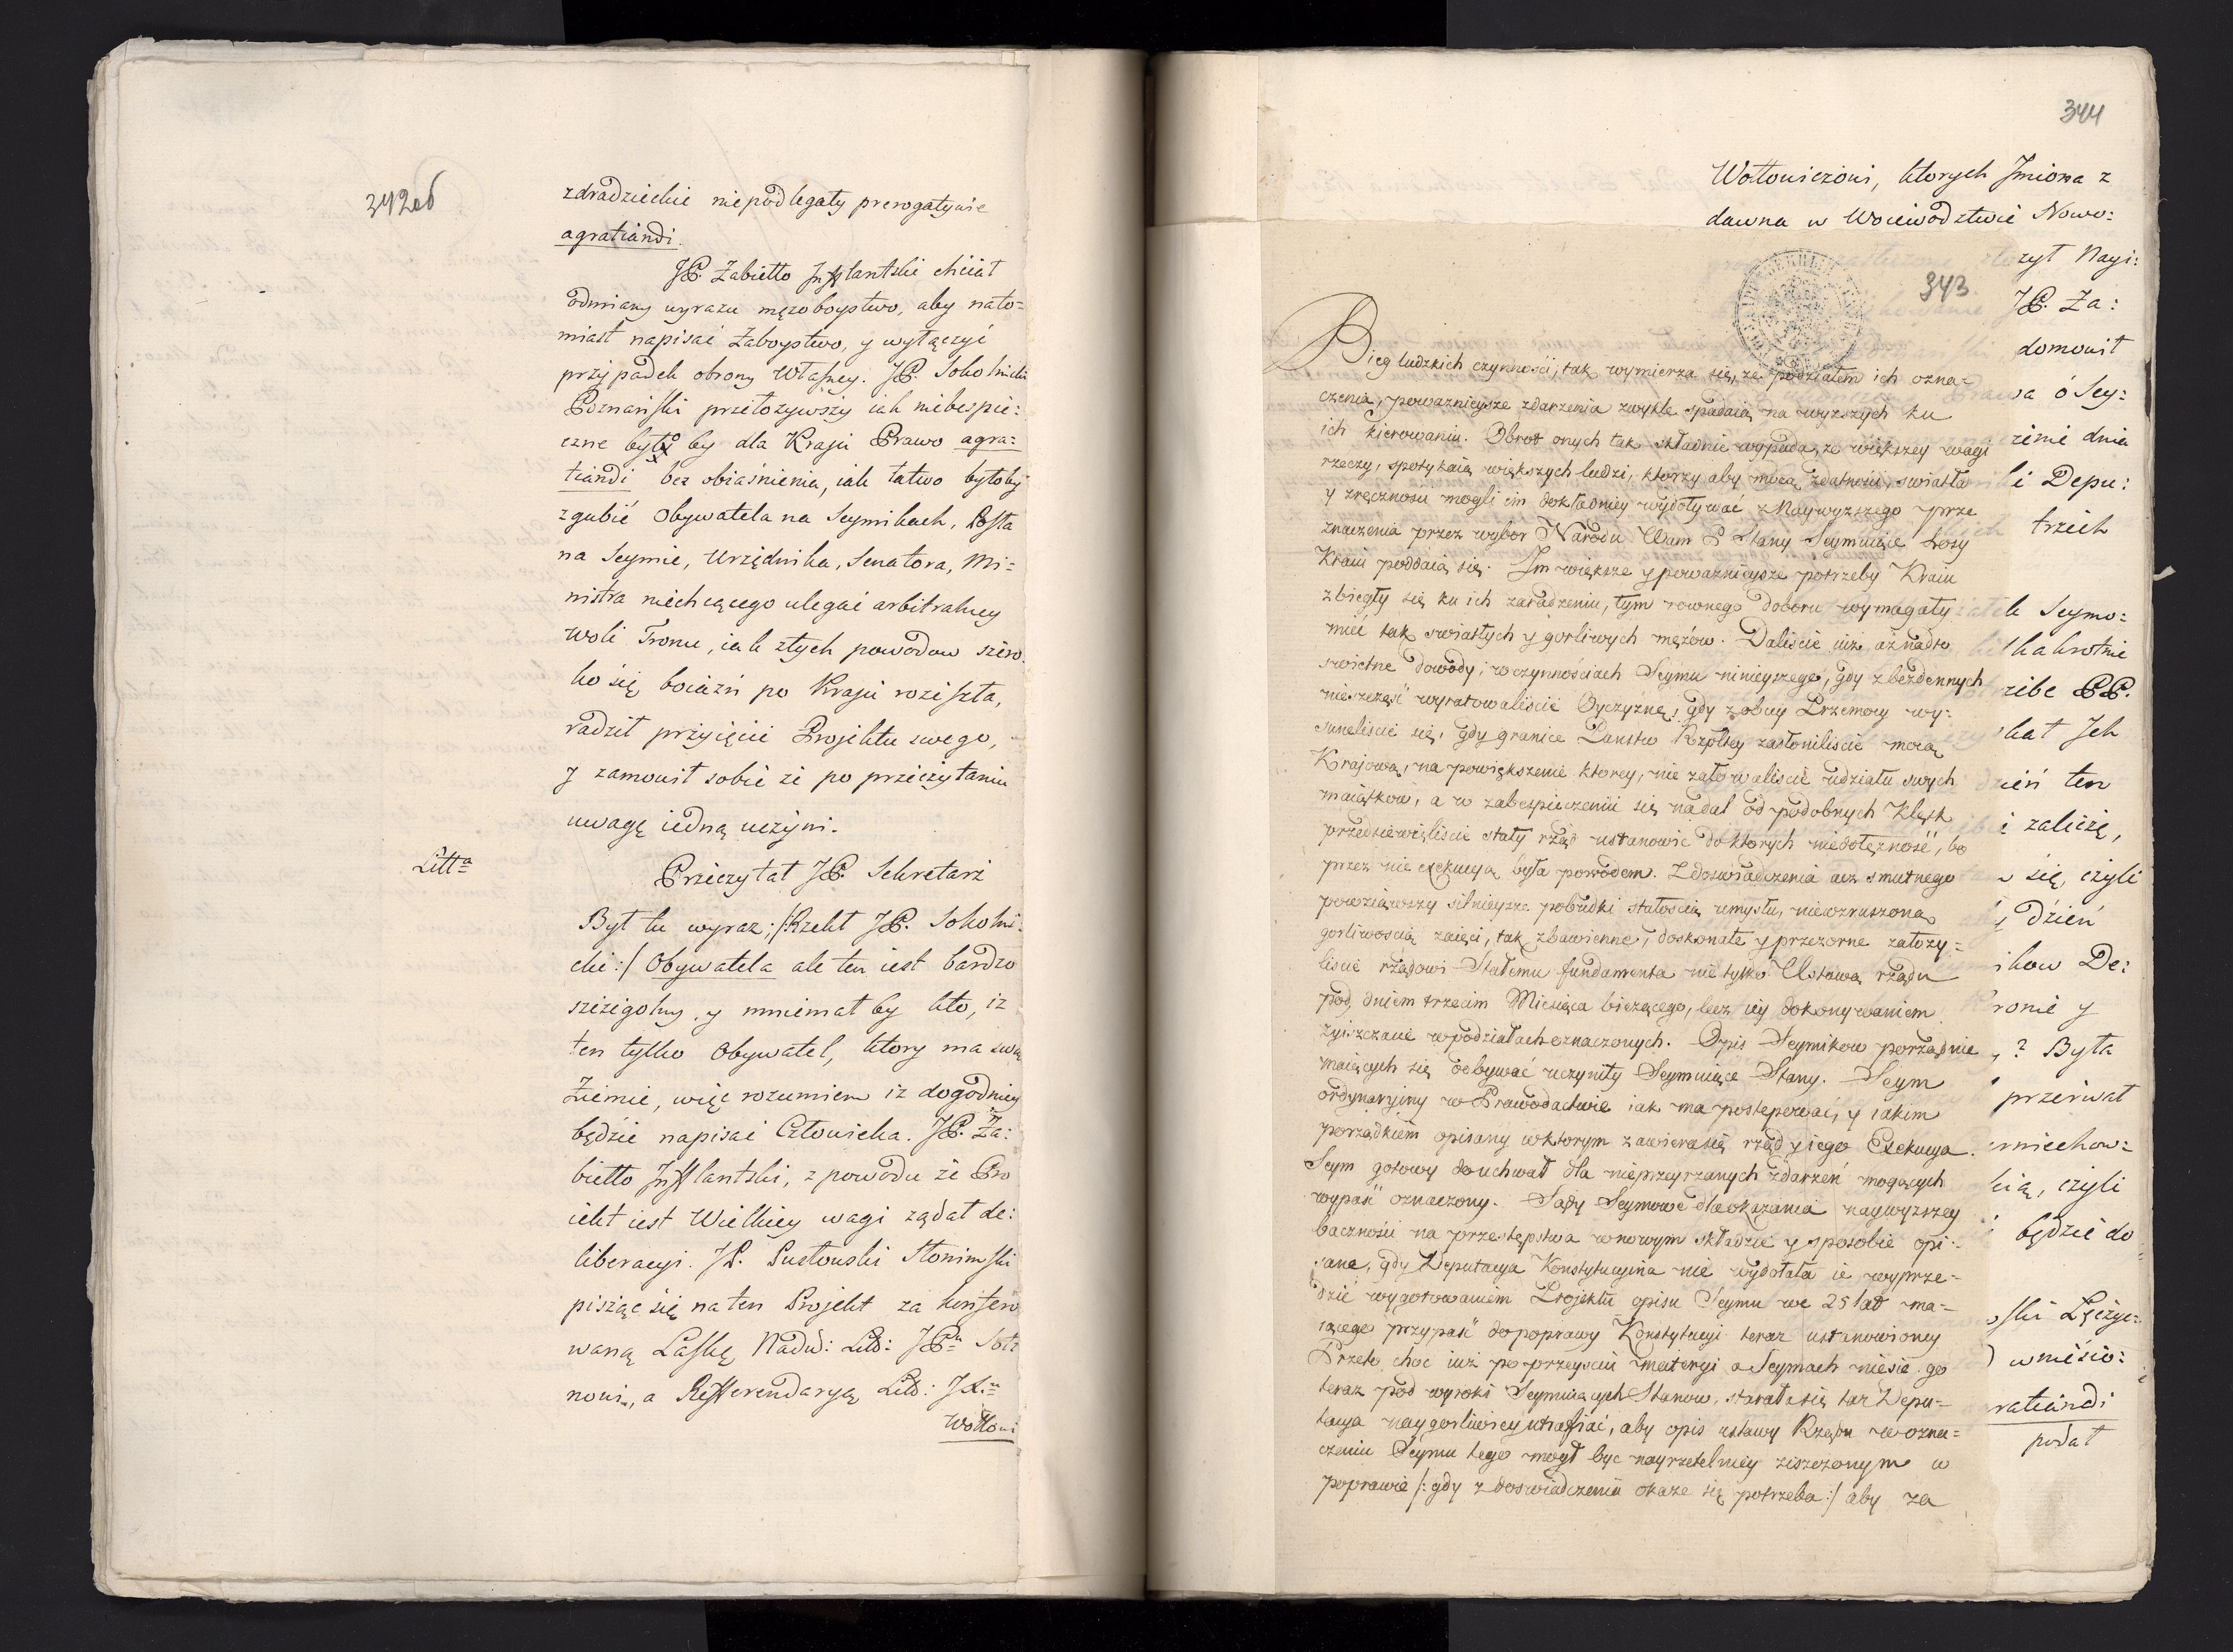 342об
zdradzieckie niepodlegały prerogatywie
agratiandi.
JP. Zabiełło Inflantski chciał
odmiany wyrazu męzoboystwo, aby nato=
miast napisać Zaboystwo, y wyłączyć
przypadek obrony własney. JP. Sokolnicki
Poznański przełozywszy iak niebespie:
czne było by dla Kraju Prawo agra=
tiandi bez obiaśnienia, iak łatwo byłoby
zgubić Obywatela na Seymikach, Posła
na Seymie, Urzędnika, Senatora, Mi=
nistra niechcącego ulegać arbitralney
woli Tronu, iak złych powodow széro
ko się boiaźń po Kraju rozeszła,
radził przyięcie Projektu swego,
y zamowił sobie ze po przeczytaniu
uwagę iedną uczyni.
Litt=a
Przeczytał JP. Sekretarz
Był tu wyraz; /: Rzekł JP. Sokolni:
cki :/ Obywatela ale ten iest bardzo
szczegolny, y mniemał by kto, iz
ten tylko Obywatel, ktory ma swą
Ziemie, więc rozumiem iz dogodniey
będzie napisać Człowieka. JP. Za:
biełło Inflantski, z powodu ze Pro
iekt iest Wielkiey wagi ządał de:
liberacyi. JP. Pusłowski Słonimski
pisząc się na ten Projekt za konfero
waną Laskę Nadw: Litt: JP=u Soł
nowi, a Refferendaryą Litt: JX=u
Wołłowi
344
Wołłowiczowi, ktorych Imiona z
dawna w Woiewodztwie Nowo:
zyt Nayi:
JP. Za:
domowił
wa ó Sey:
zenie dnia
i Depu:
trzech
k Seymo:
kakrotnie
zibe PP.
kał Ich
zień ten
i zaliczę,
się, czyli
y dzień
ikow De:
ronie y
? Była
przerwał
mniechow:
cią, czyli
będzie do
ski Łęczyc:
wnieśio:
ratiandi
podał
343
Bieg ludzkich czynności, tak wymierza się, że podziałem ich ozna=
czenia, powaznieysze zdarzenia zwykle spadaią na wyzszych ku
ich kierowaniu. Obrot onych tak składnie wypada, ze większey wagi
rzeczy, spotykaią większych ludzi, ktorzy aby mocą zdatności, swiatła
y zręczności mogli im dokładniey wydoływać z Naywyzszego prze
znaczenia przez wybor Narodu. Wam P Stany Seymuiące Losy
Kraiu poddaią się. Im większe y powaznieysze potrzeby Kraiu
zbiegły się ku ich zaradzeniu, tym rownego doboru wymagały
mieć tak swiatłych y gorliwych męzow. Daliscie iuz az nadto
swietne dowody, w czynnościach Seymu ninieyszego, gdy z bezdennych
nieszczęść wyratowaliście Oyczyznę, gdy z obcey Przemocy wy:
suneliscie się, gdy granice Panstw Rzpltey zasłoniliscie mocą
Krajową, na powiększenie ktorey, nie załowaliscie udziału swych
maiątkow, a w zabespieczenii się nadal od podobnych Klęsk
przedsiewzieliscie stały rząd ustanowic do ktorych niedołęzność, bo
przez nie exekucyą była powodem. Z doswiadczenia acz smutnego
powziąwszy silnieysze pobudki stałoscią umysłu, niewzruszoną
gorliwoscią zaięci, tak zbawienne, doskonałe y przezorne załozy=
liscie rządowi Stałemu fundamenta nie tylko Ustawą rządu
pod dniem trzecim Miesiąca bieżącego, lecz iey dokonywaniem
ziszczacie w podziałach oznaczonych. Opis Seymikow porządnie
maiących się odbywać uczyniły Seymuiące Stany. Seym
ordynaryiny w Prawodactwie iak ma postępować, y iakim
porządkiem opisany w ktorym zawiera się rząd y iego Exekucya.
Seym gotowy do uchwał dla nieprzeyrzanych zdarzeń mogących
wypaść oznaczony. Sądy Seymowe dla okazania naywyzszey
baczności na przestępstwa w nowym składzie y sposobie opi:
sane, gdy Deputacya Konstytucyina nie wydołała ie wyprze=
dzić wygotowaniem Projektu opisu Seymu we 25 lat ma=
iącego przypaść do poprawy Konstytucyi teraz ustanowioney
Przeto choc iuż po przeysciu materyi o Seymach niesie go
teraz pod wyroki Seymuiących Stanow, starała się taz Depu=
tacya naygorliwiey utrafiać, aby opis ustawy Rządu w ozna=
czeniu Seymu tego mogł byc nayrzetelniey ziszczonym w
poprawie /: gdy z doswiadczenia okaze się potrzeba :/ aby za